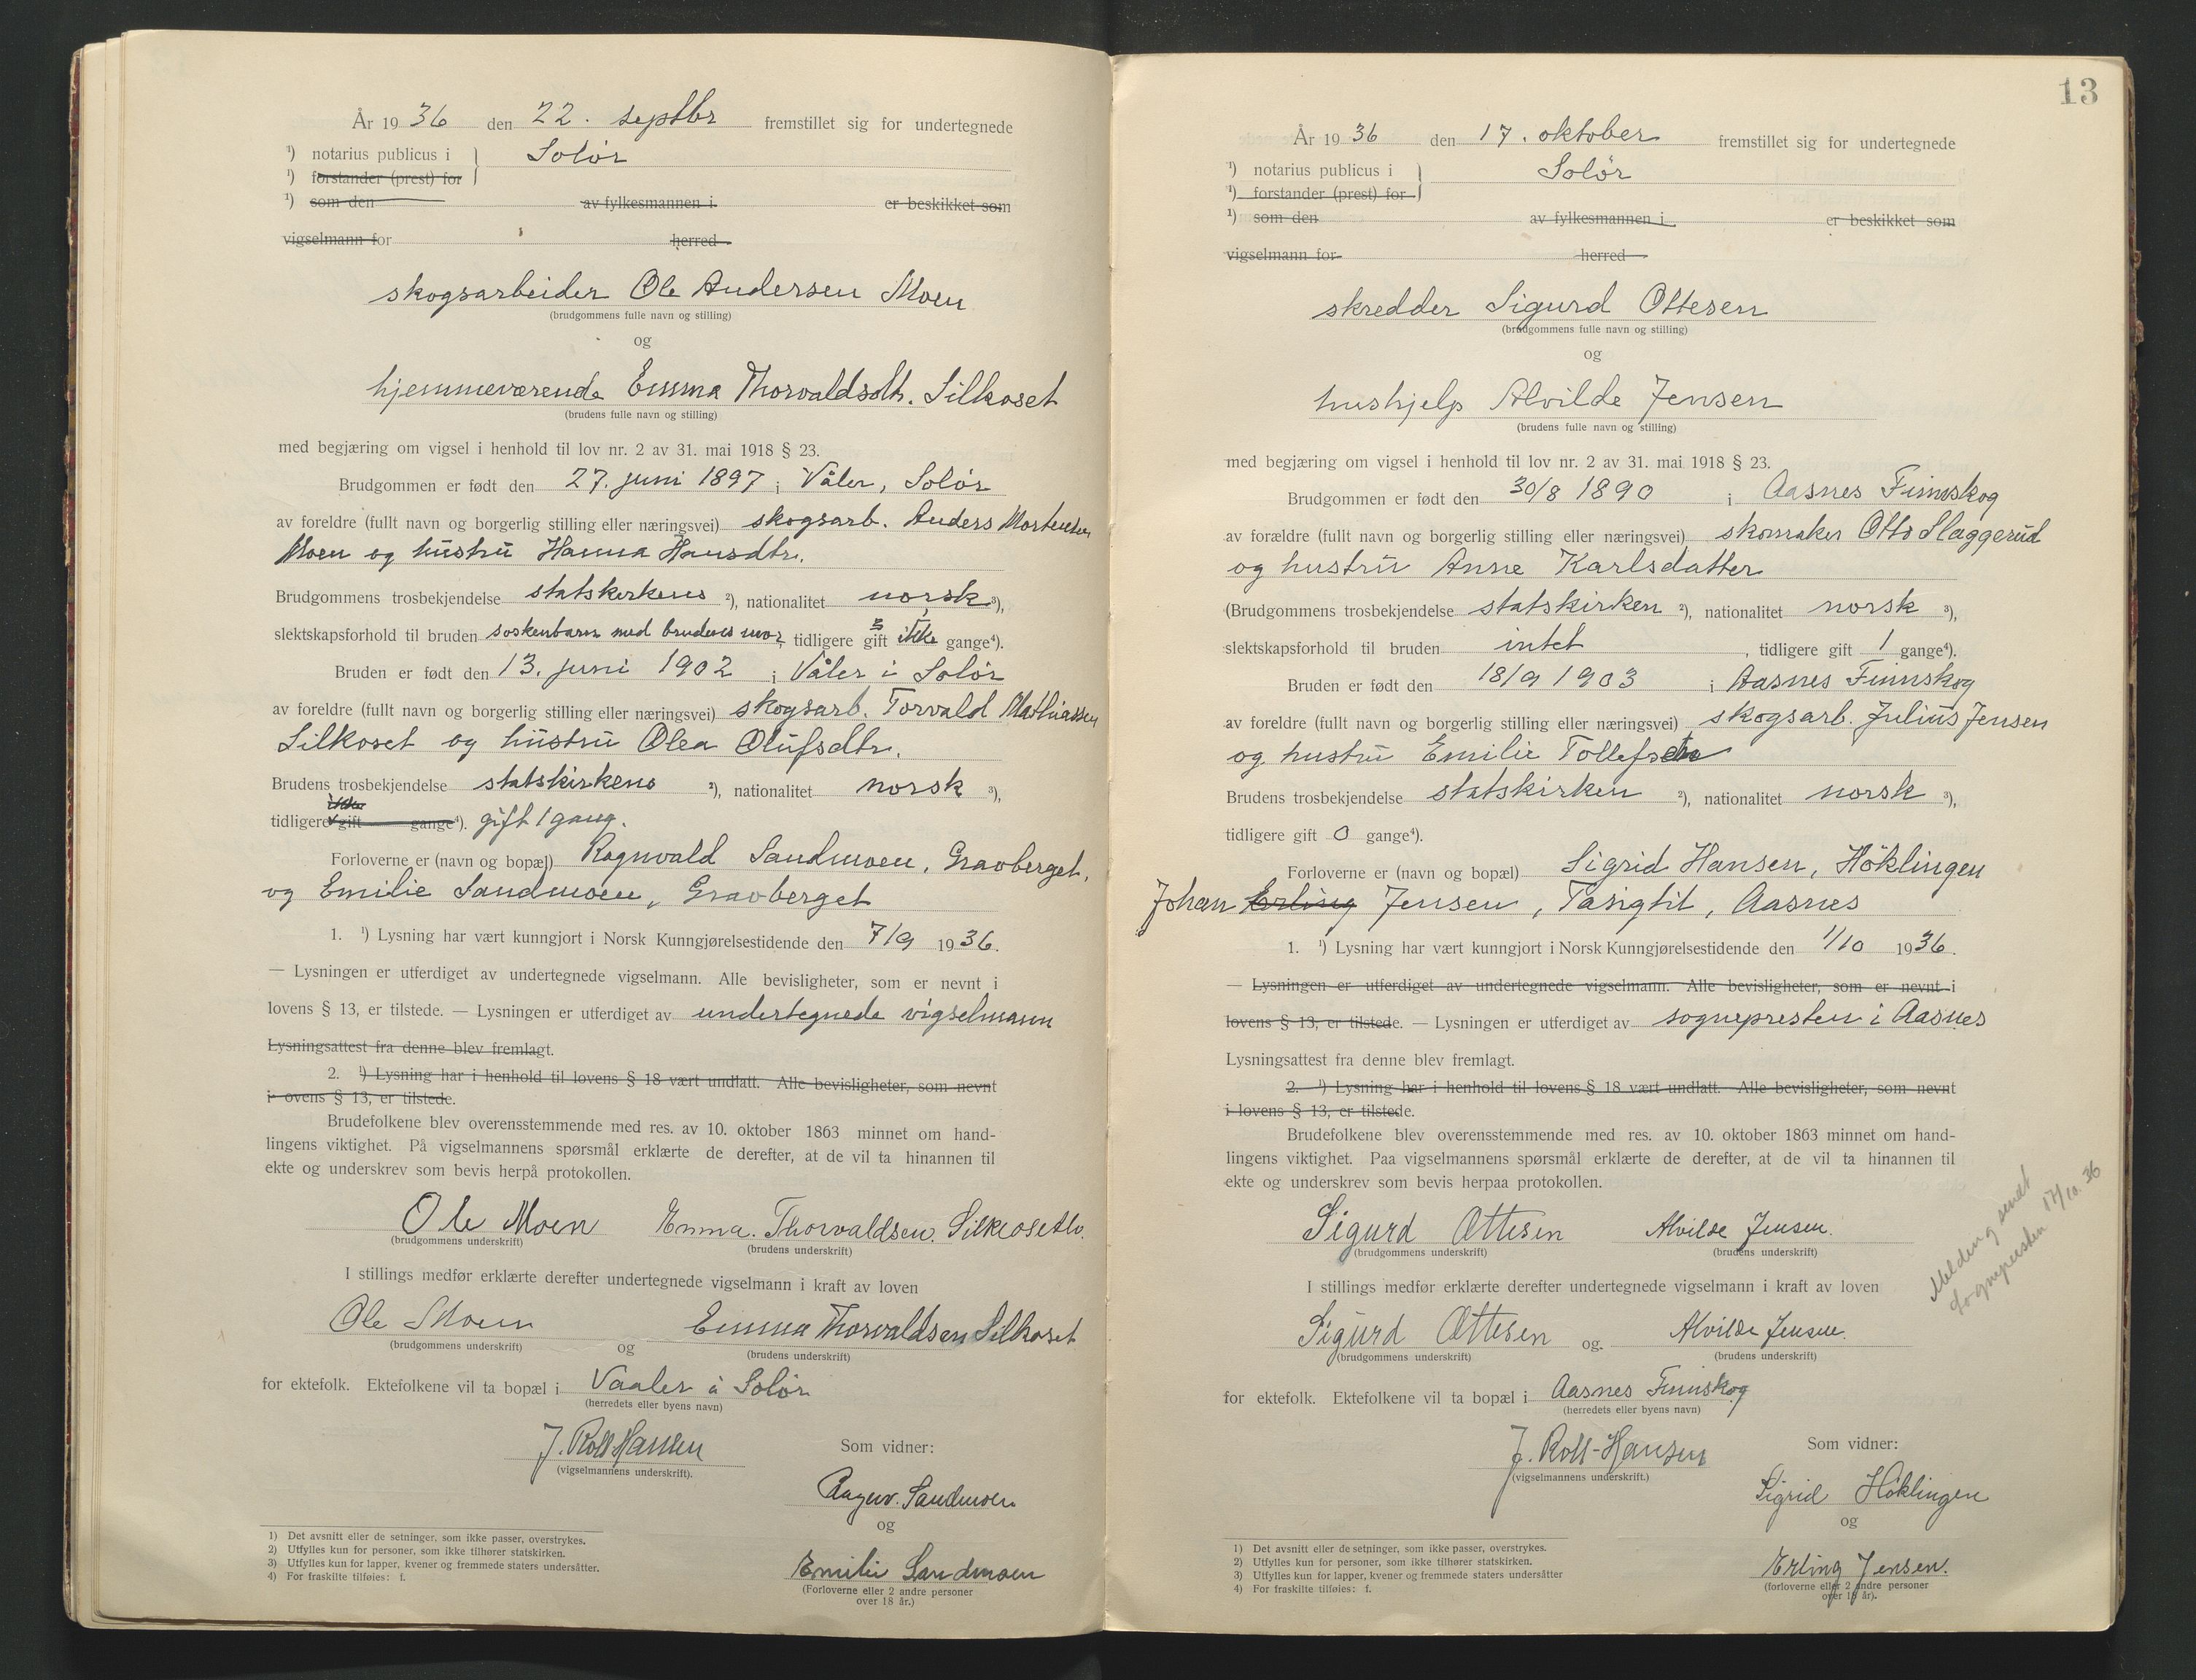 År 1936 den 22. septbr fremstillet sig for undertegnede
¹) notarius publicus i } Solør
¹) forstander (prest) for
¹) som den av fylkesmannen i er beskikket som
vigselmann for herred
skogsarbeider Ole Andersen Moen
(brudgommens fulle navn og stilling)
og
hjemmeværende Emma Thorvaldsdtr. Silkoset
(brudens fulle navn og stilling)
med begjæring om vigsel i henhold til lov nr. 2 av 31. mai 1918 § 23.
Brudgommen er født den 27. juni 1897 i Våler, Solør
av foreldre (fullt navn og borgerlig stilling eller næringsvei) skogsarb. Anders Mortensen
Moen og hustru Hanna Hansdtr.
Brudgommens trosbekjendelse statskirkens ²), nationalitet norsk ³),
slektskapsforhold til bruden søskenbarn med brudens mor, tidligere gift ikke gange⁴).
Bruden er født den 13. juni 1902 i Våler i Solør
av foreldre (fullt navn og borgerlig stilling eller næringsvei) skogsarb. Torvald Mathiassen
Silkoset og hustru Olea Olufsdtr.
Brudens trosbekjendelse statskirkens ²), nationalitet norsk ³),
ikke
tidligere gift gange⁴). gift 1 gang.
Forloverne er (navn og bopæl) Ragnvald Sandmoen, Gravberget,
og Emilie Sandmoen, Gravberget
1. ¹) Lysning har vært kunngjort i Norsk Kunngjørelsestidende den 7/9 1936.
— Lysningen er utferdiget av undertegnede vigselmann. Alle bevisligheter, som er nevnt i
lovens § 13, er tilstede. — Lysningen er utferdiget av undertegnede vigselmann
Lysningsattest fra denne blev fremlagt.
2. ¹) Lysning har i henhold til lovens § 18 vært undlatt. Alle bevisligheter, som nevnt
i ovens § 13, er tilstede.
Brudefolkene blev overensstemmende med res. av 10. oktober 1863 minnet om hand-
lingens viktighet. På vigselmannens spørsmål erklærte de derefter, at de vil ta hinannen til
ekte og underskrev som bevis herpå protokollen.
Ole Moen Emma. Thorvaldsen. Silkoset
(brudgommens underskrift) (brudens underskrift)
I stillings medfør erklærte derefter undertegnede vigselmann i kraft av loven
Ole Moen og Emma Thorvaldsen Silkoset
(brudgommens underskrift) (brudens underskrift)
for ektefolk. Ektefolkene vil ta bopæl i Vaaler i Solør
(herredets eller byens navn)
J. Roll Hansen
(vigselmannens underskrift).
Som vidner:
Ragnv. Sandmoen
og
Emilie Sandmoen
(Forloverne eller 2 andre personer
over 18 år.)
1) Det avsnitt eller de setninger, som ikke passer, overstrykes.
2) Utfylles kun for personer, som ikke tilhører statskirken.
3) Utfylles kun for lapper, kvener og fremmede staters undersåtter.
4) For fraskilte tilføies: f.
13
År 1936 den 17. oktober fremstillet sig for undertegnede
¹) notarius publicus i } Solør
¹) forstander (prest) for
¹) som den av fylkesmannen i er beskikket som
vigselmann for herred
skredder Sigurd Ottesen
(brudgommens fulle navn og stilling)
og
hushjelp Alvilde Jensen
(brudens fulle navn og stilling)
med begjæring om vigsel i henhold til lov nr. 2 av 31. mai 1918 § 23.
Brudgommen er født den 30/8 1890 i Aasnes Finnskog
av forældre (fullt navn og borgerlig stilling eller næringsvei) skomaker Otto Slaggerud
og hustru Anne Karlsdatter
(Brudgommens trosbekjendelse statskirken ²), nationalitet norsk ³),
slektskapsforhold til bruden intet, tidligere gift 1 gange⁴).
Bruden er født den 18/9 1903 i Aasnes Finnskog
av foreldre (fullt navn og borgerlig stilling eller næringsvei) skogsarb. Julius Jensen
og hustru Emilie Tollefsdtr
Brudens trosbekjendelse statskirken ²), nationalitet norsk ³),
tidligere gift 0 gange⁴).
Forloverne er (navn og bopæl) Sigrid Hansen, Höklingen
Johan Erling Jensen, Aasnes
1. ¹) Lysning har vært kunngjort i Norsk Kunngjørelsestidende den 1/10 1936.
— Lysningen er utferdiget av undertegnede vigselmann. Alle bevisligheter, som er nevnt i
lovens § 13, er tilstede. — Lysningen er utferdiget av sognepresten i Aasnes
Lysningsattest fra denne blev fremlagt.
2. ¹) Lysning har i henhold til lovens § 18 vært undlatt. Alle bevisligheter, som nevnt
i lovens § 13, er tilstede.
Brudefolkene blev overensstemmende med res. av 10. oktober 1863 minnet om hand-
lingens viktighet. Paa vigselmannens spørsmål erklærte de derefter, at de vil ta hinannen til
ekte og underskrev som bevis herpaa protokollen.
Sigurd Ottesen Alvilde Jensen.
(brudgommens underskrift) (brudens underskrift)
I stillings medfør erklærte derefter undertegnede vigselmann i kraft av loven
Sigurd Ottesen og. Alvilde Jensen.
(brudgommens underskrift) (brudens underskrift)
for ektefolk. Ektefolkene vil ta bopæl i Aasnes Finnskog
(herredets eller byens navn)
J. Roll-Hansen
(vigselmannens underskrift.)
Som vidner:
Sigrid Höklingen
og
Erling Jensen.
(forloverne eller 2 andre personer
over 18 år).
1) Det avsnitt eller de setninger, som ikke passer, overstrykes.
2) Utfylles kun for personer, som ikke tilhører statskirken.
3) Utfylles kun for lapper, kvener og fremmede staters undersåtter
4) For fraskilte tilføies: f.
Melding sendt
sognepresten 17/10. 36